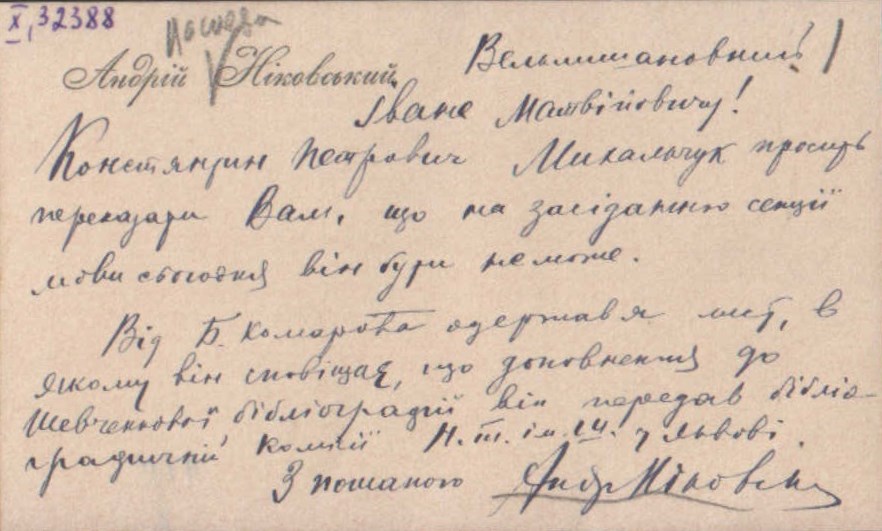 X, 32388
Андрій Ніковський
Вельмишановний
Іване Матвійовичу!
Констянтин Петрович Михальчук просить
переказати Вам, що на засіданню секції
мови сьогодня він бути не може.
Від Б. Комарова одержав я лист, в
якому він сповіщає, що доповнення до
Шевченкової бібліографії він передав бібліо-
графичній комисії Н. Т. ім. Ш. у Львові.
З пошаною Андр Ніковський